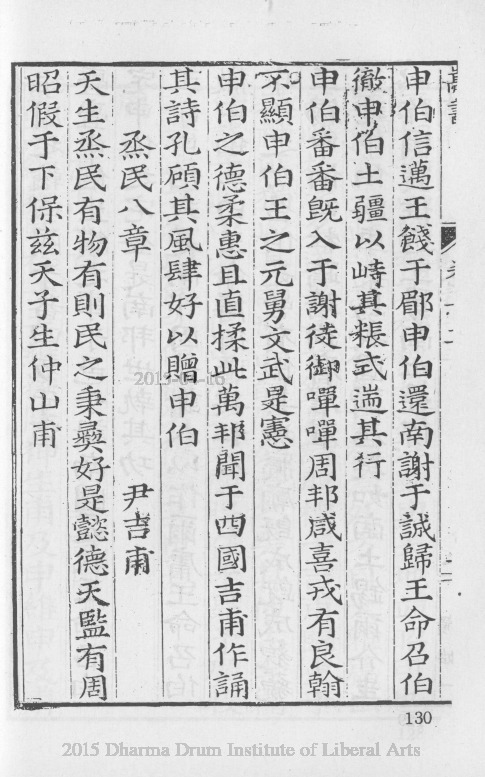 申伯信邁王餞于郿申伯還南謝于誠歸王命召伯
徹申伯土疆以峙其粻式遄其行
申伯番番旣入于謝徒御嘽嘽周邦咸喜戎有良翰
不顯申伯王之元舅文武是憲
申伯之德柔惠且直揉此萬邦聞于四國吉甫作誦
其詩孔碩其風肆好以贈申伯
烝民八章 尹吉甫
天生烝民有物有則民之秉彝好是懿德天監有周
昭假于下保茲天子生仲山甫
130
2015 Dharma Drum Institute of Liberal Arts